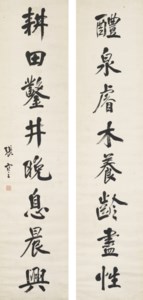 醴泉睿木養齡盡性
耕田鑿井晚息晨興
張謇